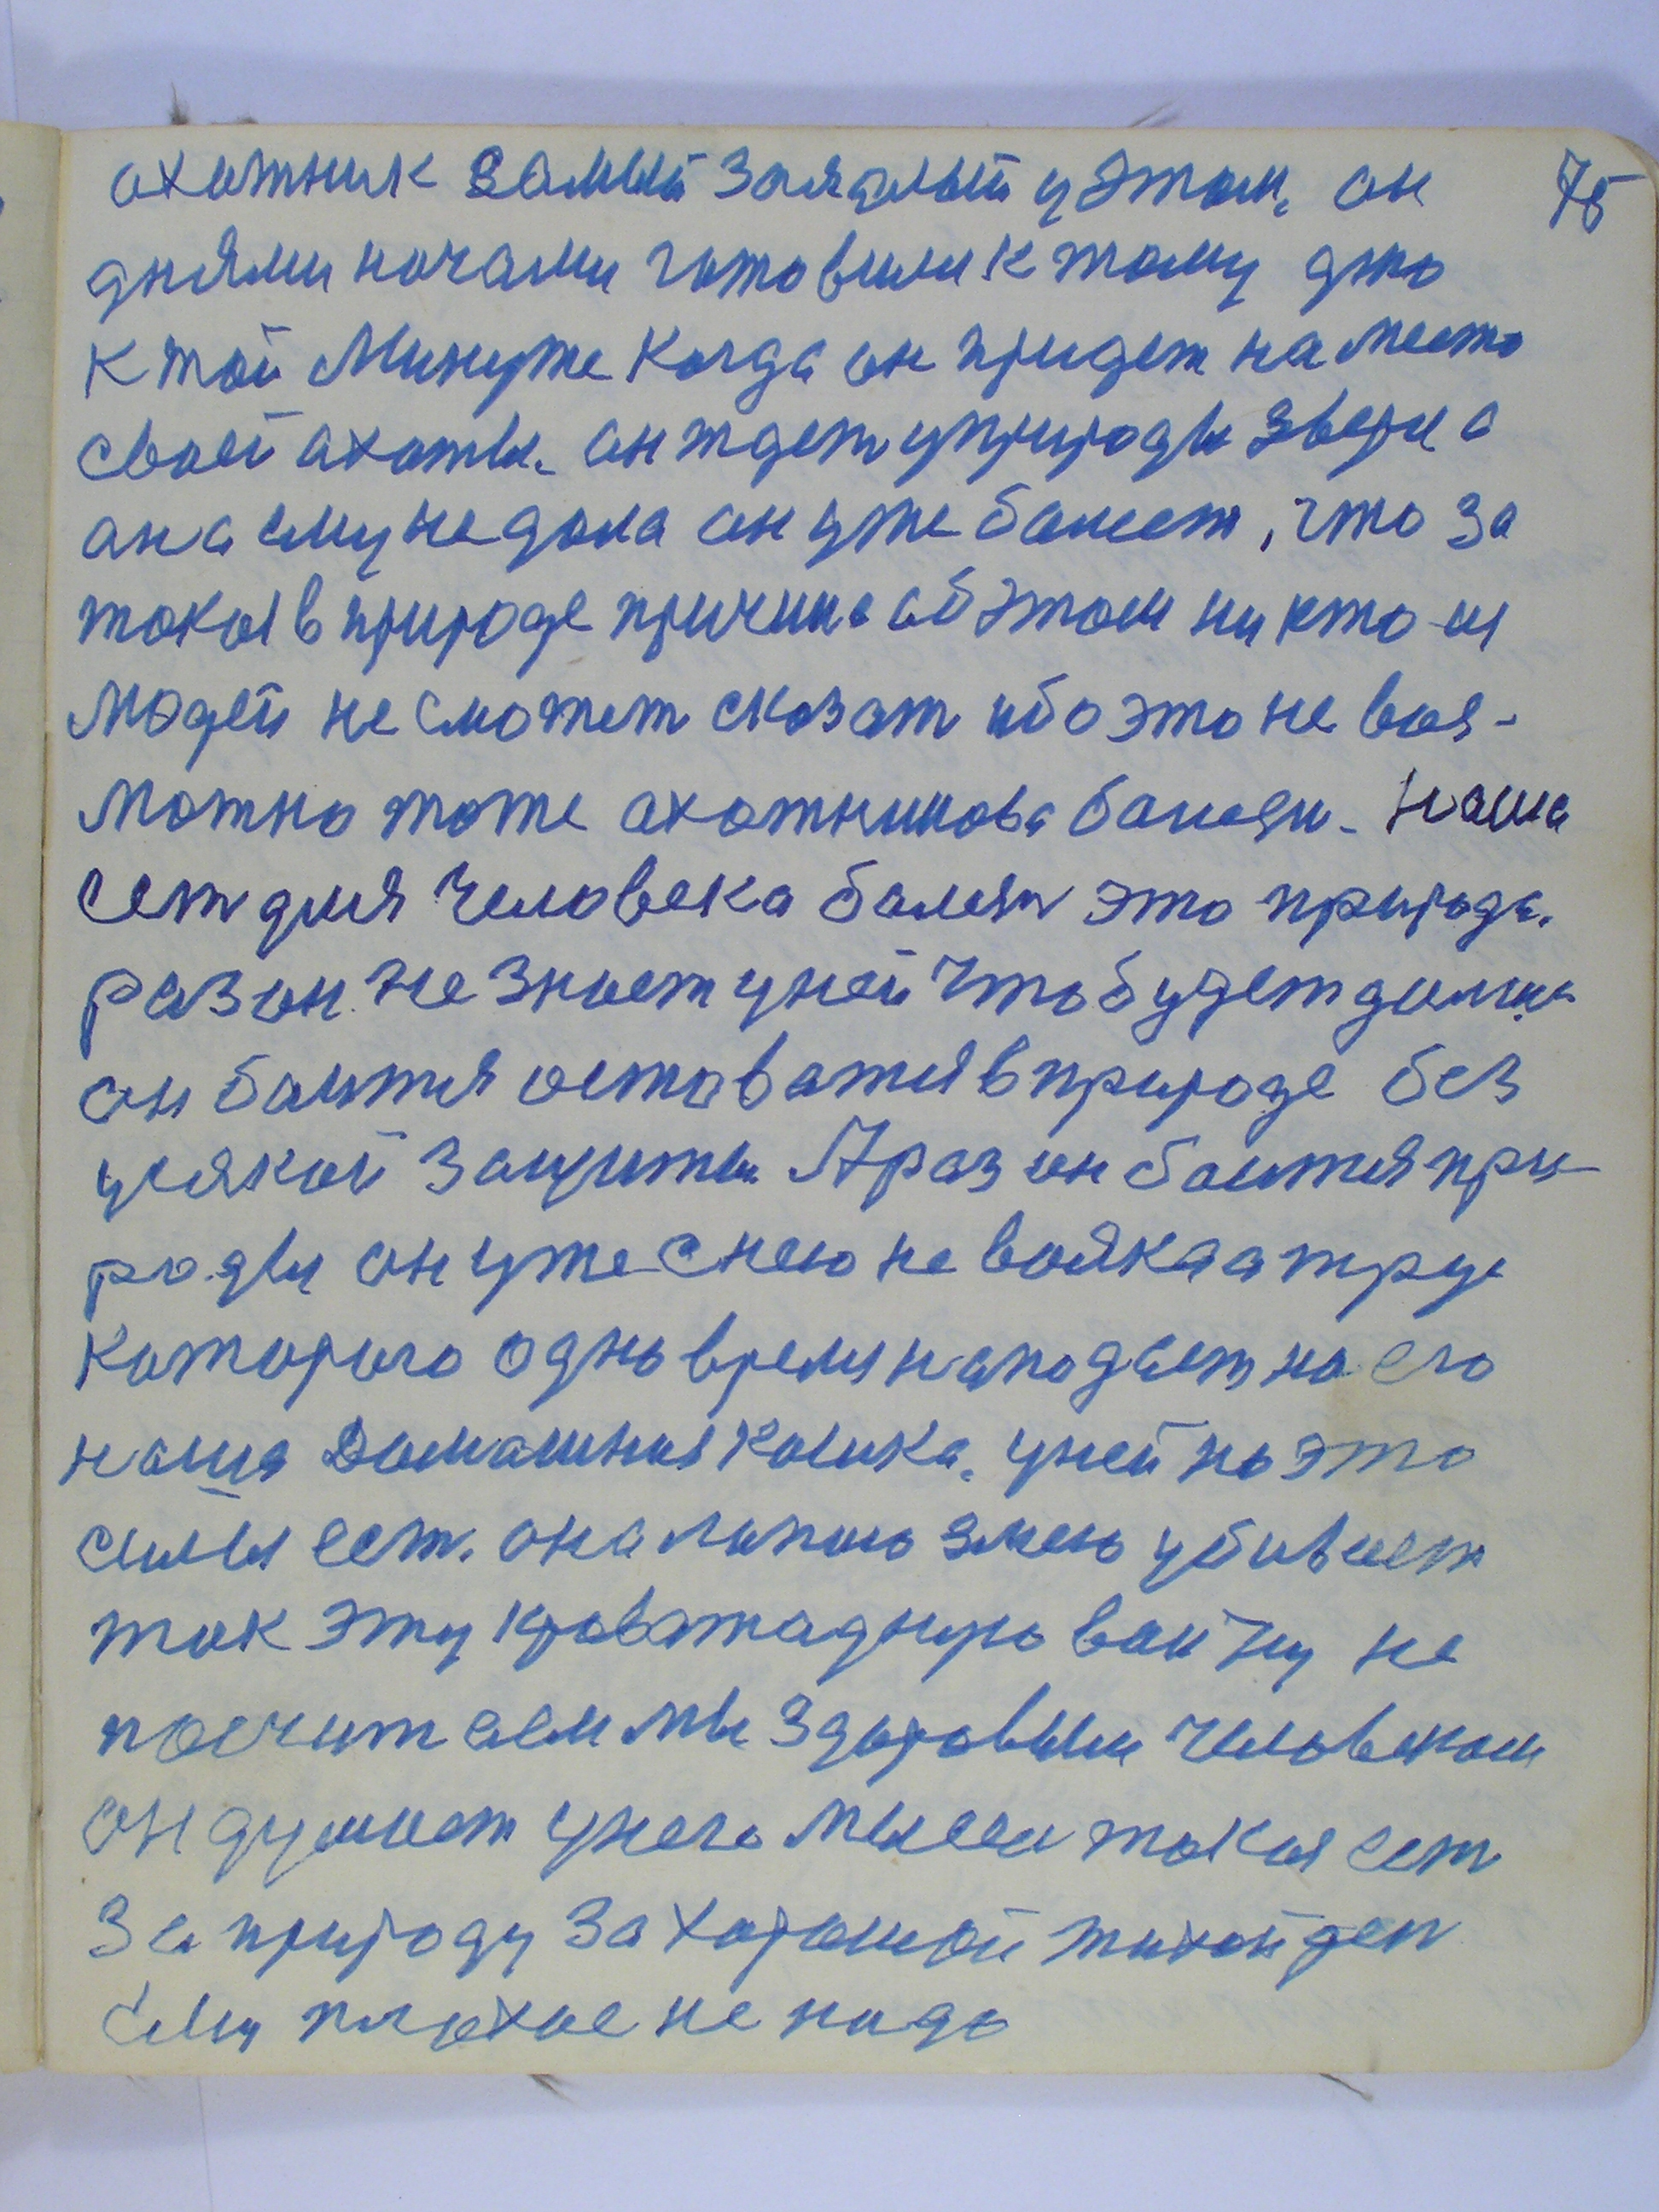 охотник самый заядлый у этом, он 75
днями ночами готовили к тому дню
к той минуте когда он придет на место
своей ахоты. он ждет у природы зверя а
ана ему не дала он уже балеет, что за
токоя в природе причина об этом ни кто из
людей не сможет сказат ибо это не воз-
можно тоже ахотникова балезн. наша
ест для человека балезн это природа.
раз он не знает у ней что будет дальше
он баитея остоватея в природе без
усякой защиты. А раз он баитея при-
роды он уже с нею не вояка а трус
которого одно время наподает на его
наша домашния кошка. у ней на это
силы ест. она лапою змею убивает
так эту кровожадную вайну не
посчитаем мы здоровым человеком
он думает у него мысля токая ест
за природу за хорошой тихой ден
ему плохое не надо